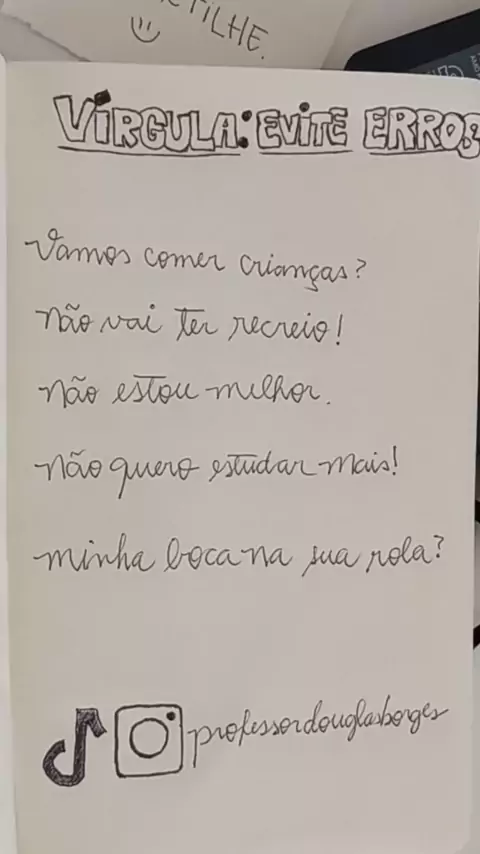 TILHE.
VÍRGULA: EVITE ERROS
Vamos comer crianças?
Não vai ter recreio!
Não estou melhor.
Não quero estudar mais!
minha boca na sua rola?
professordouglasborges